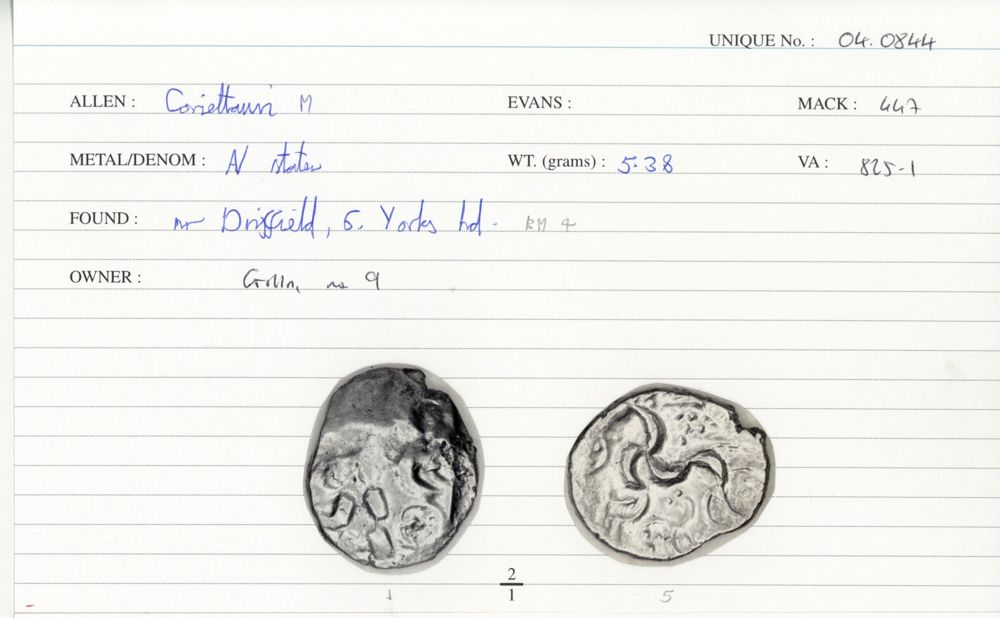 UNIQUE No. : 04.0844
ALLEN : Corieltauvi M EVANS : MACK : 447
METAL/DENOM : N stater WT. (grams) : 5.38 VA : 825-1
FOUND : nr Driffield, E. Yorks hd.
OWNER : no 9
2
1
1 5